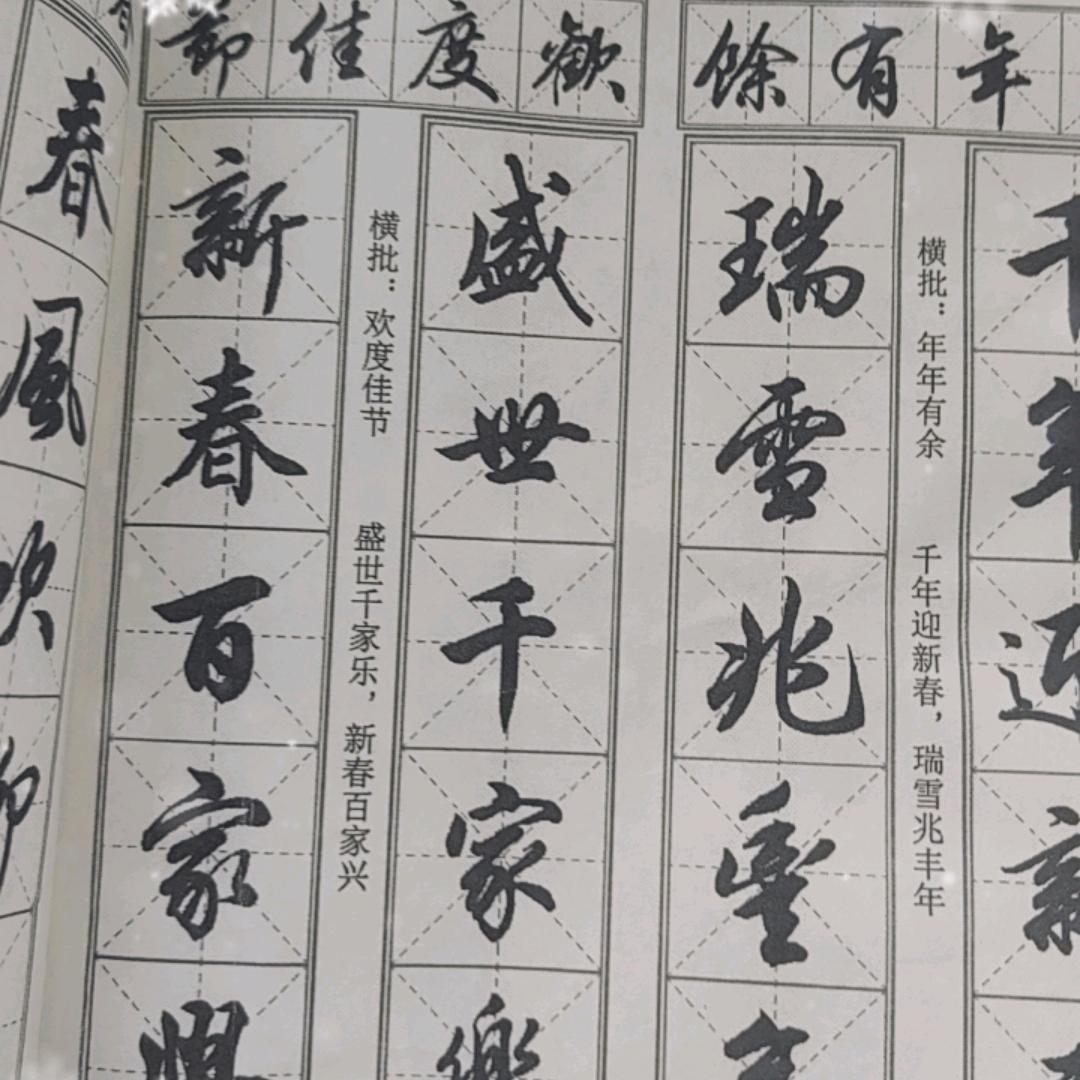 年有餘
千年迎新
横批：年年有余 千年迎新春，瑞雪兆丰年
瑞雪兆豐年
歡度佳節
盛世千家樂
横批：欢度佳节 盛世千家乐，新春百家兴
新春百家興
春風吹柳